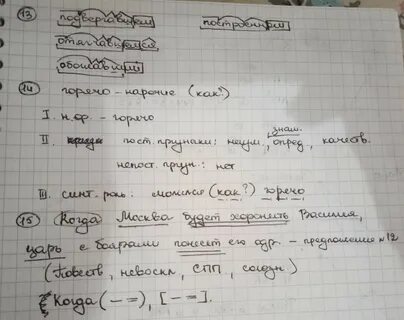 13 подвергавшем построенном
отягчавшемся
обошедшими
14 горячо - наречие (как?)
I. н.ф. - горячо
II. пост. признаки: неизм., знам., опред., качеств.
непост. призн.: нет
III. синт. роль: молился (как?) горячо
15 Когда Москва будет хоронить Василия,
царь с боярами понесет его одр. - предложение №12
(Повеств, невоскл, СПП, союзн)
Когда (- =), [- =].